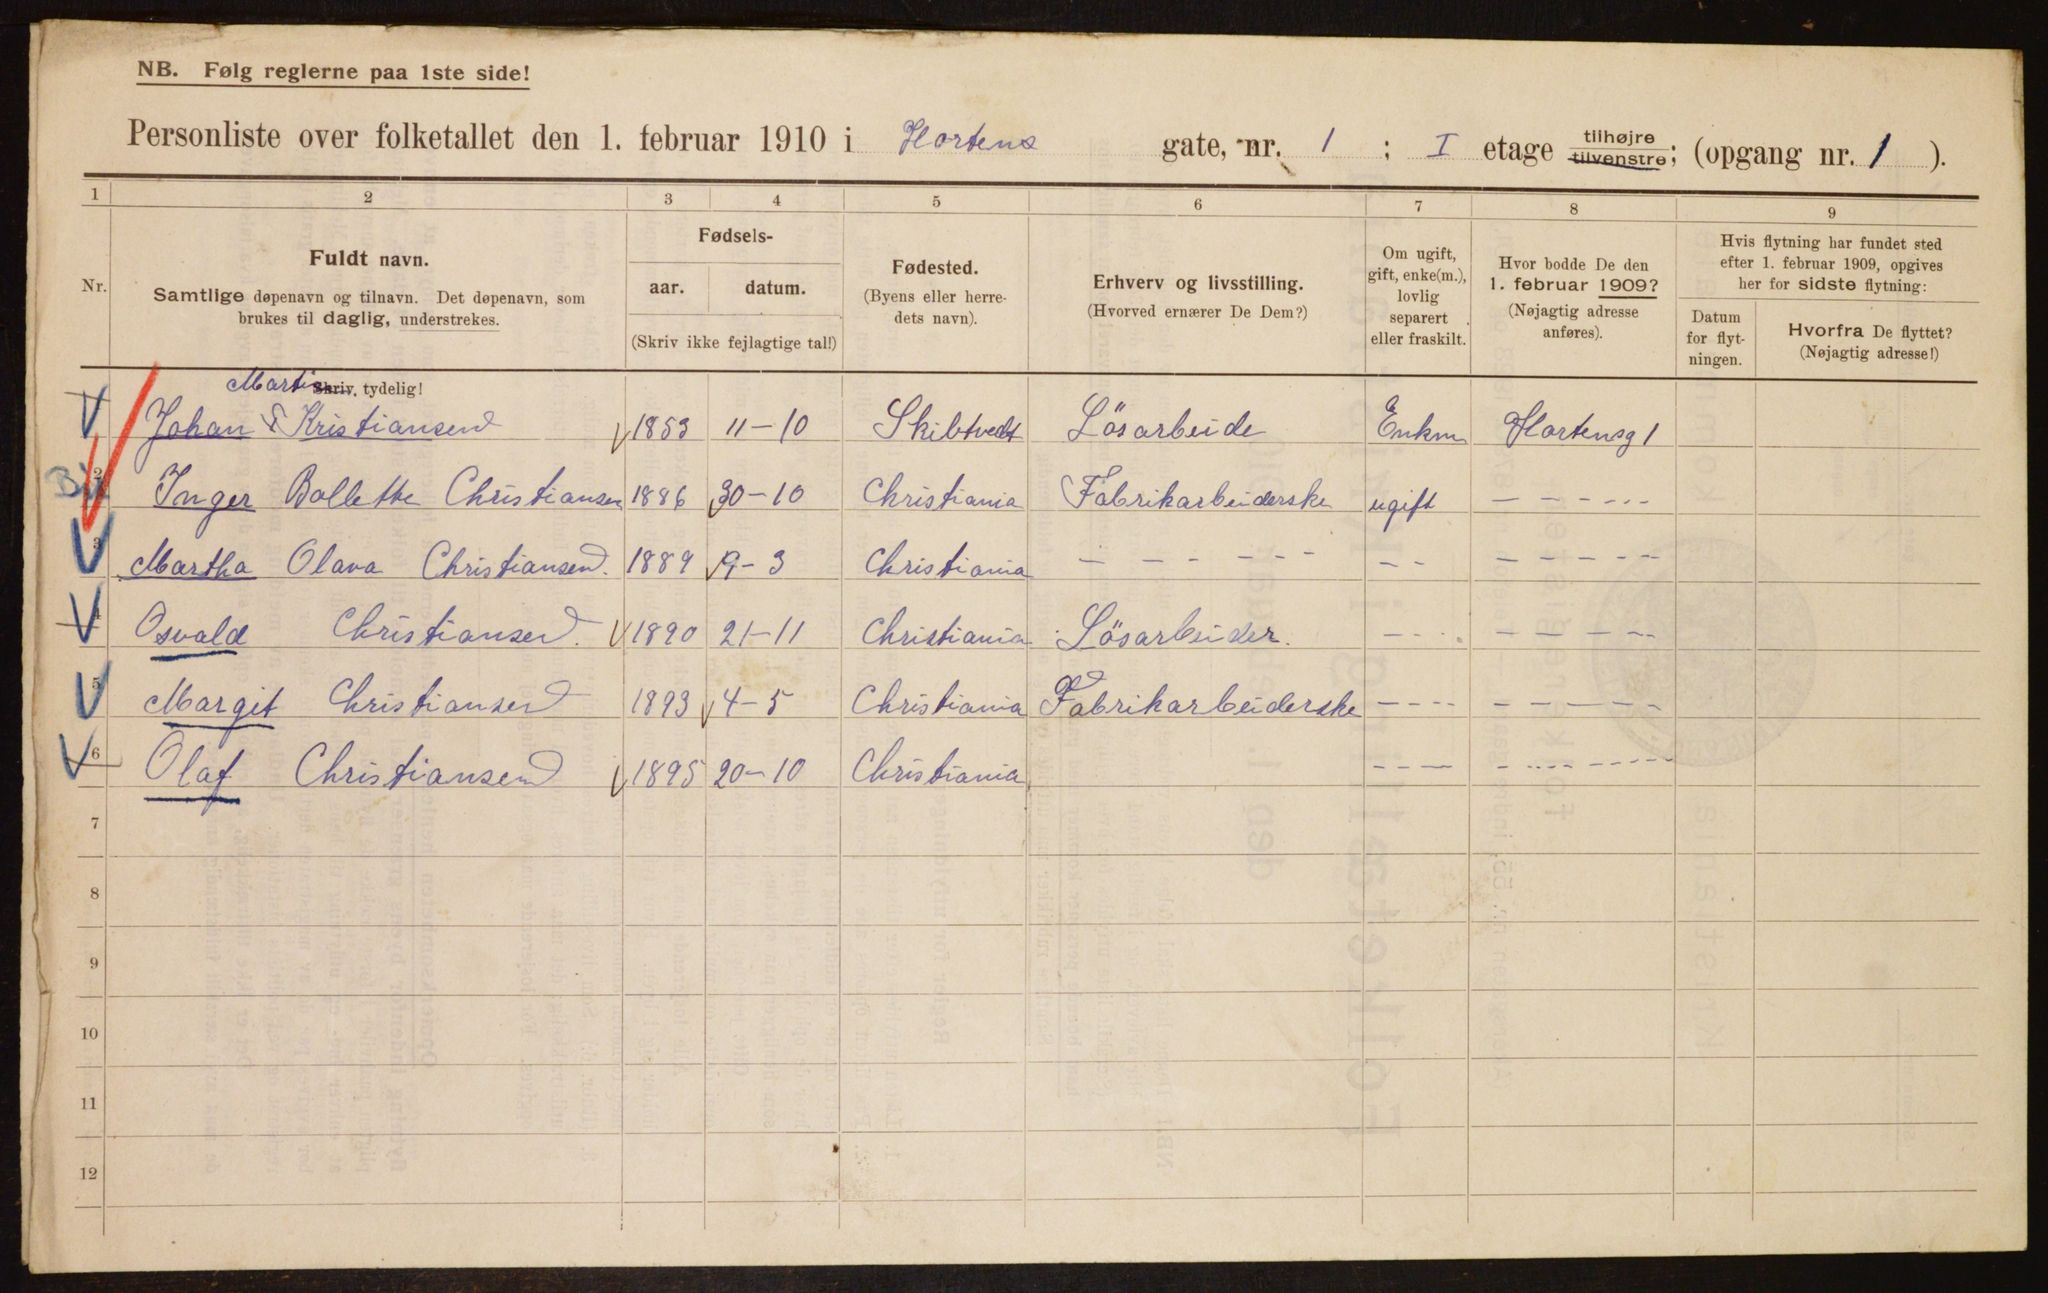 NB. Følg reglerne paa 1ste side!
Personliste over folketallet den 1. februar 1910 i Hortens gate, nr. 1 ; I etage tilhøjre tilvenstre; (opgang nr. 1 ).
1 2 3 4 5 6 7 8 9
Nr.
Fuldt navn.
Samtlige døpenavn og tilnavn. Det døpenavn, som
brukes til daglig, understrekes.
Fødsels-
aar. datum.
(Skriv ikke fejlagtige tal!)
Fødested.
(Byens eller herre-
dets navn).
Erhverv og livsstilling.
(Hvorved ernærer De Dem?)
Om ugift,
gift, enke(m.),
lovlig
separert
eller fraskilt.
Hvor bodde De den
1. februar 1909?
(Nøjagtig adresse
anføres).
Hvis flytning har fundet sted
efter 1. februar 1909, opgives
her for sidste flytning:
Datum
for flyt-
ningen.
Hvorfra De flyttet?
(Nøjagtig adresse!)
Martin Skriv tydelig!
Johan Kristiansen 1853 11-10 Skibtvedt Lösarbeide Enkm Hortensg 1
2 Inger Bollette Christiansen 1886 30-10 Christiania Fabrikarbeiderske ugift - - - - - -
3 Martha Olava Christiansen. 1889 9-3 Christiania - - - - - - - - - - - - -
4 Osvald Christiansen. 1890 21-11 Christiania Lösarbeider. - - - - - - - - - -
5 Margit Christiansen 1893 4-5 Christiania Fabrikarbeiderske - - - - - - - - - -
6 Olaf Christiansen 1895 20-10 Christiania - - - - - - - - - -
7
8
9
10
11
12